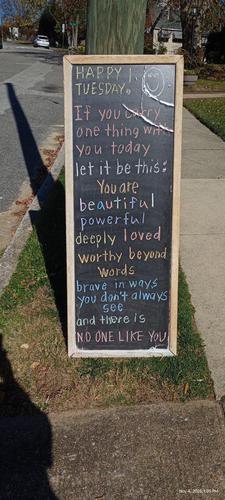 HAPPY
TUESDAY!
If you carry
one thing with
you today
let it be this:
You are
beautiful
powerful
deeply loved
worthy beyond
words
brave in ways
you don't always
see
and there is
NO ONE LIKE YOU
Nov 4, 2025, 1:05 PM